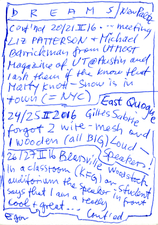 DREAMS / New Page
Cont'nd 20/21 II 16 ... meeting
LIZ PATTERSON + Michael
Barrickman from UTMOST
Magazine of UT @ Austin and
I ask them if the know that
Marty Knott-Snow is in
town (= NYC)
East Quogue
24/25 II 2016 Gillis Subtie
forgot 2 wire-mesh and
1 wooden (all BIG) Loud
Speakers!
26/27 II 16
In a classroom (KFG) or
auditorium the speaker in front
says that I am a really
cool + great ...
Cont'ed